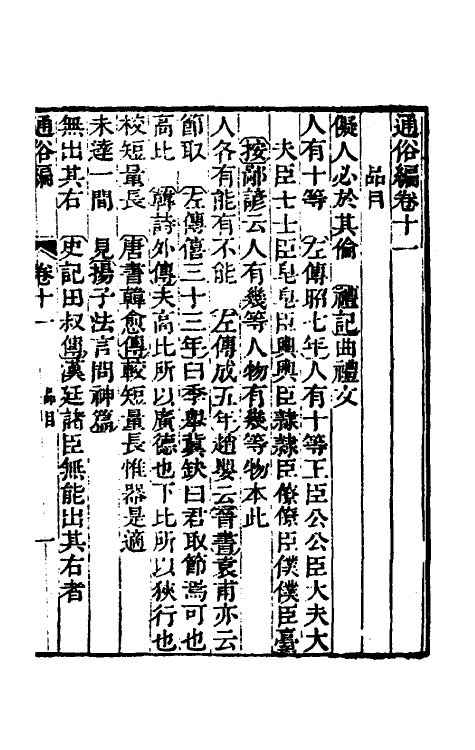 通俗編卷十一
品目
儗人必於其倫　禮記曲禮文
人有十等　左傳昭七年人有十等王臣公公臣大夫大
夫臣士士臣皂皂臣輿輿臣隸隸臣僚僚臣僕僕臣臺
按鄙諺云人有幾等人物有幾等物本此
人各有能有不能　左傳成五年趙嬰云晉書袁甫亦云
節取　左傳僖三十三年臼季舉冀缺曰君取節焉可也
高比　韓詩外傳夫高比所以廣德也下比所以狹行也
校短量長　唐書韓愈傳較短量長惟器是適
未達一間　見揚子法言問神篇
無出其右　史記田叔傳漢廷諸臣無能出其右者
通俗編　卷十一　品目　一